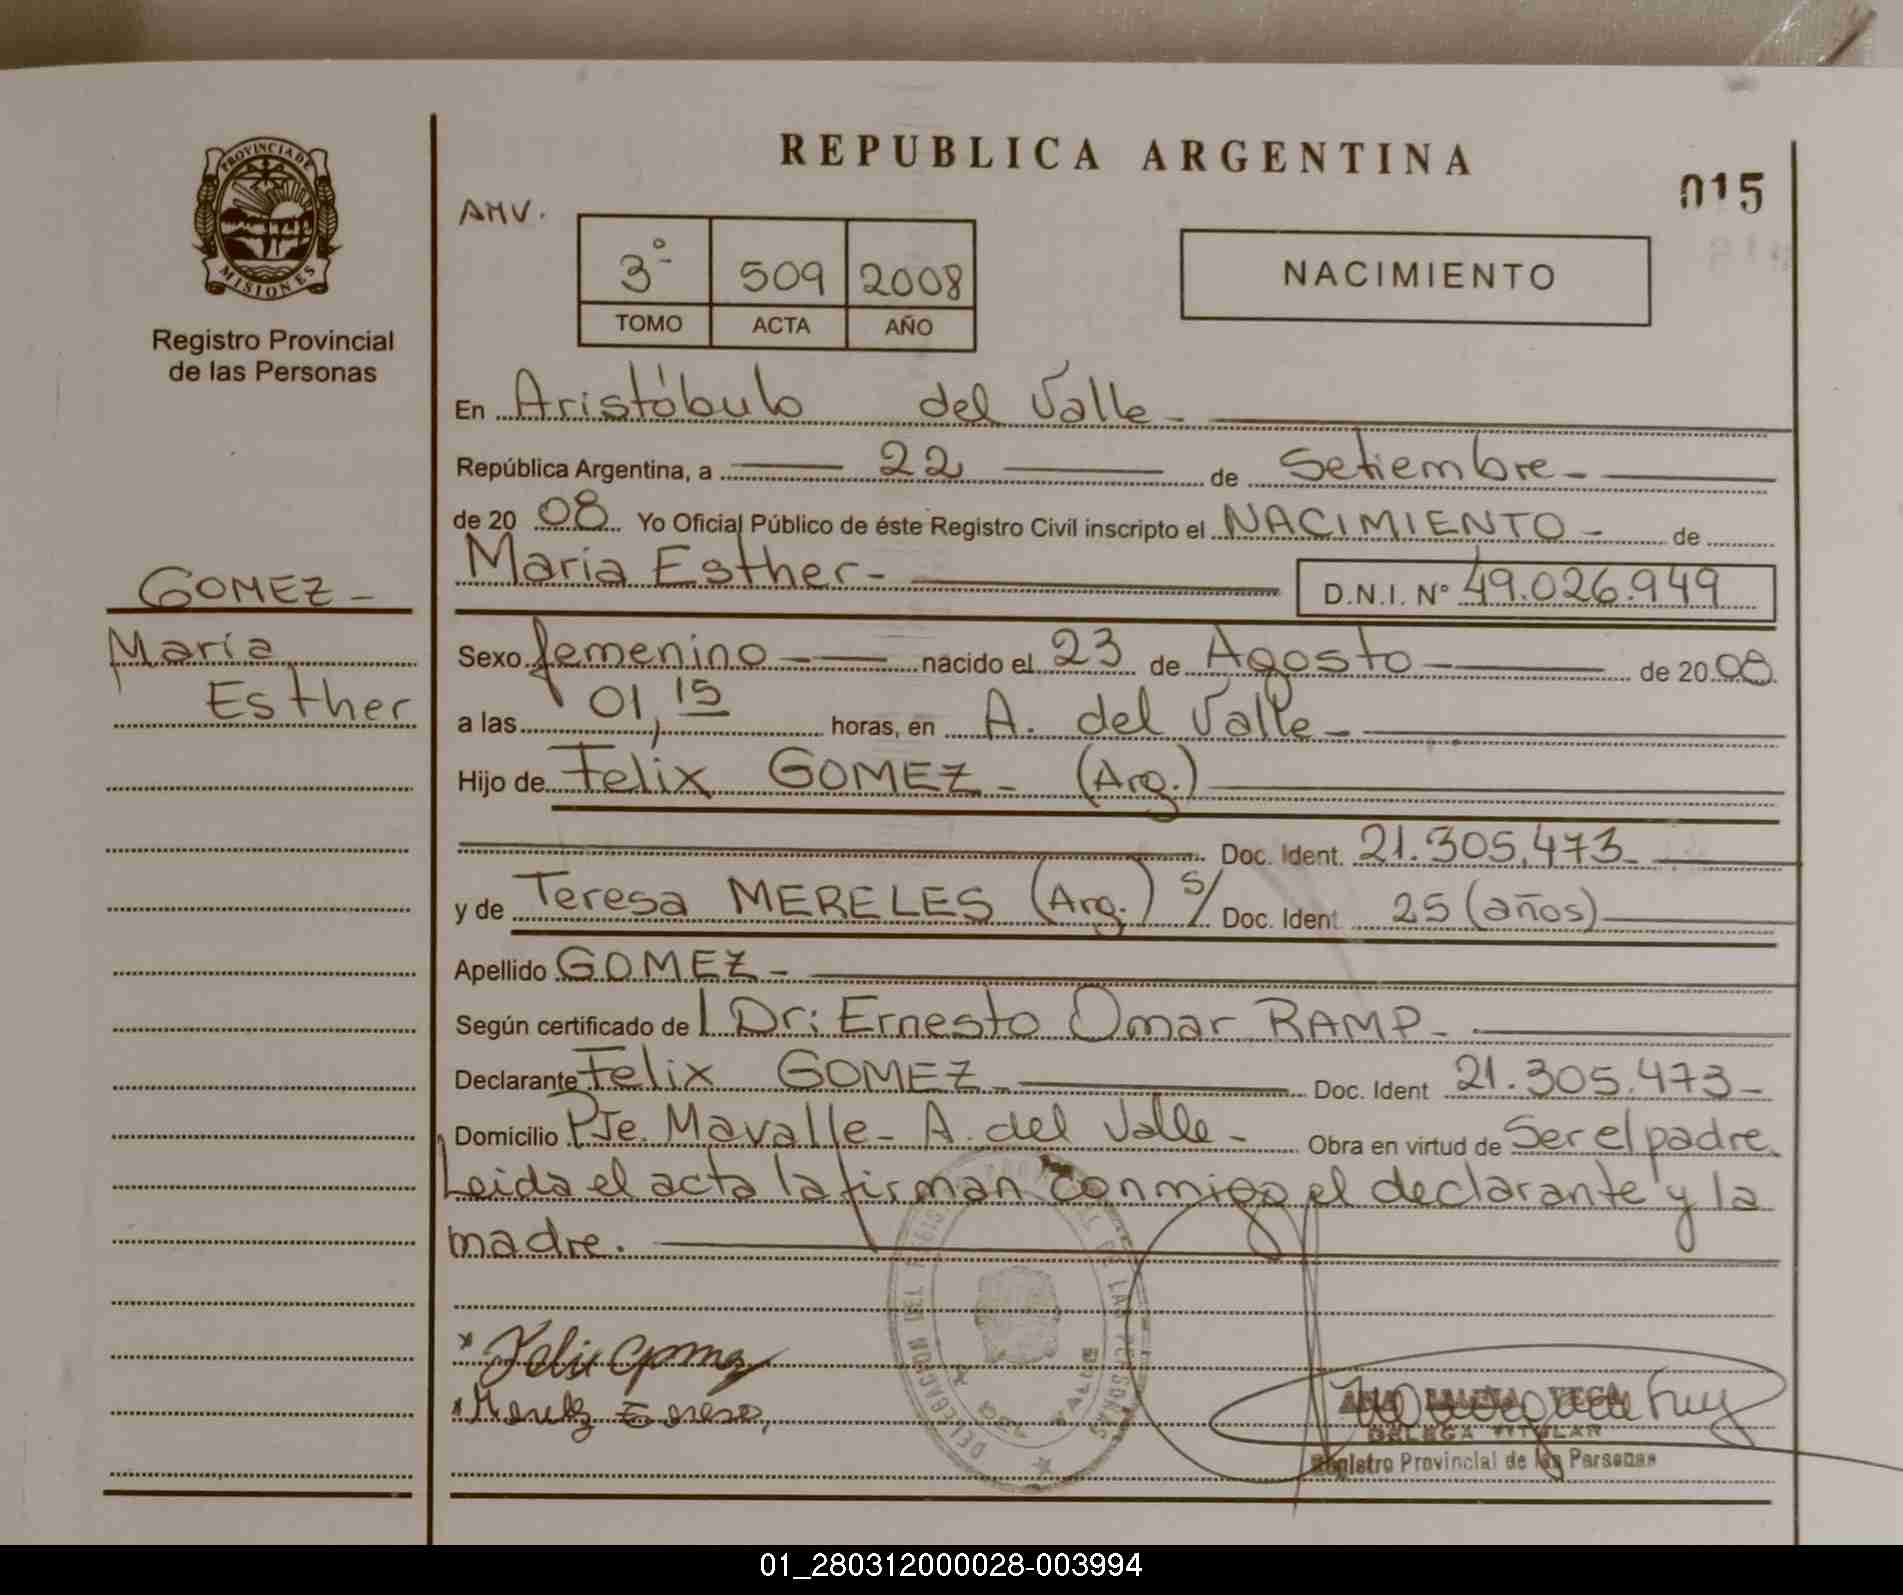 REPUBLICA ARGENTINA
015
PROVINCIA DE
MISIONES
Registro Provincial
de las Personas
AMV.
3º 509 2008
TOMO ACTA AÑO
NACIMIENTO
En Aristóbulo del Valle-
República Argentina, a 22 de Setiembre-
de 20 08 Yo Oficial Público de éste Registro Civil inscripto el NACIMIENTO - de
María Esther- D.N.I. Nº 49.026.949
GOMEZ-
María
Esther
Sexo femenino - nacido el 23 de Agosto - de 20 08
a las 01,15 horas, en A. del Valle-
Hijo de Felix GOMEZ- (Arg.)
Doc. Ident. 21.305.473-
y de Teresa MERELES (Arg.) S/ Doc. Ident 25 (años)
Apellido GOMEZ-
Según certificado de Dr: Ernesto Omar RAMP-
Declarante Felix GOMEZ- Doc. Ident 21.305.473-
Domicilio Pje. Mavalle- A. del Valle- Obra en virtud de Ser el padre.
Leida el acta la firman conmigo el declarante y la
madre.
DELEGACION DEL REGISTRO PROVINCIAL DE LAS PERSONAS
VALLE
Felix Gomez
TITULAR
Registro Provincial de las Personas
01_280312000028-003994